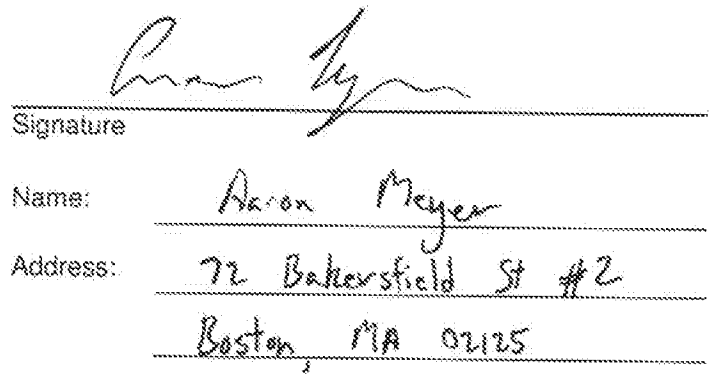 Signature
Name: Aaron Meyer
Address: 72 Bakersfield St #2
Boston, MA 02125